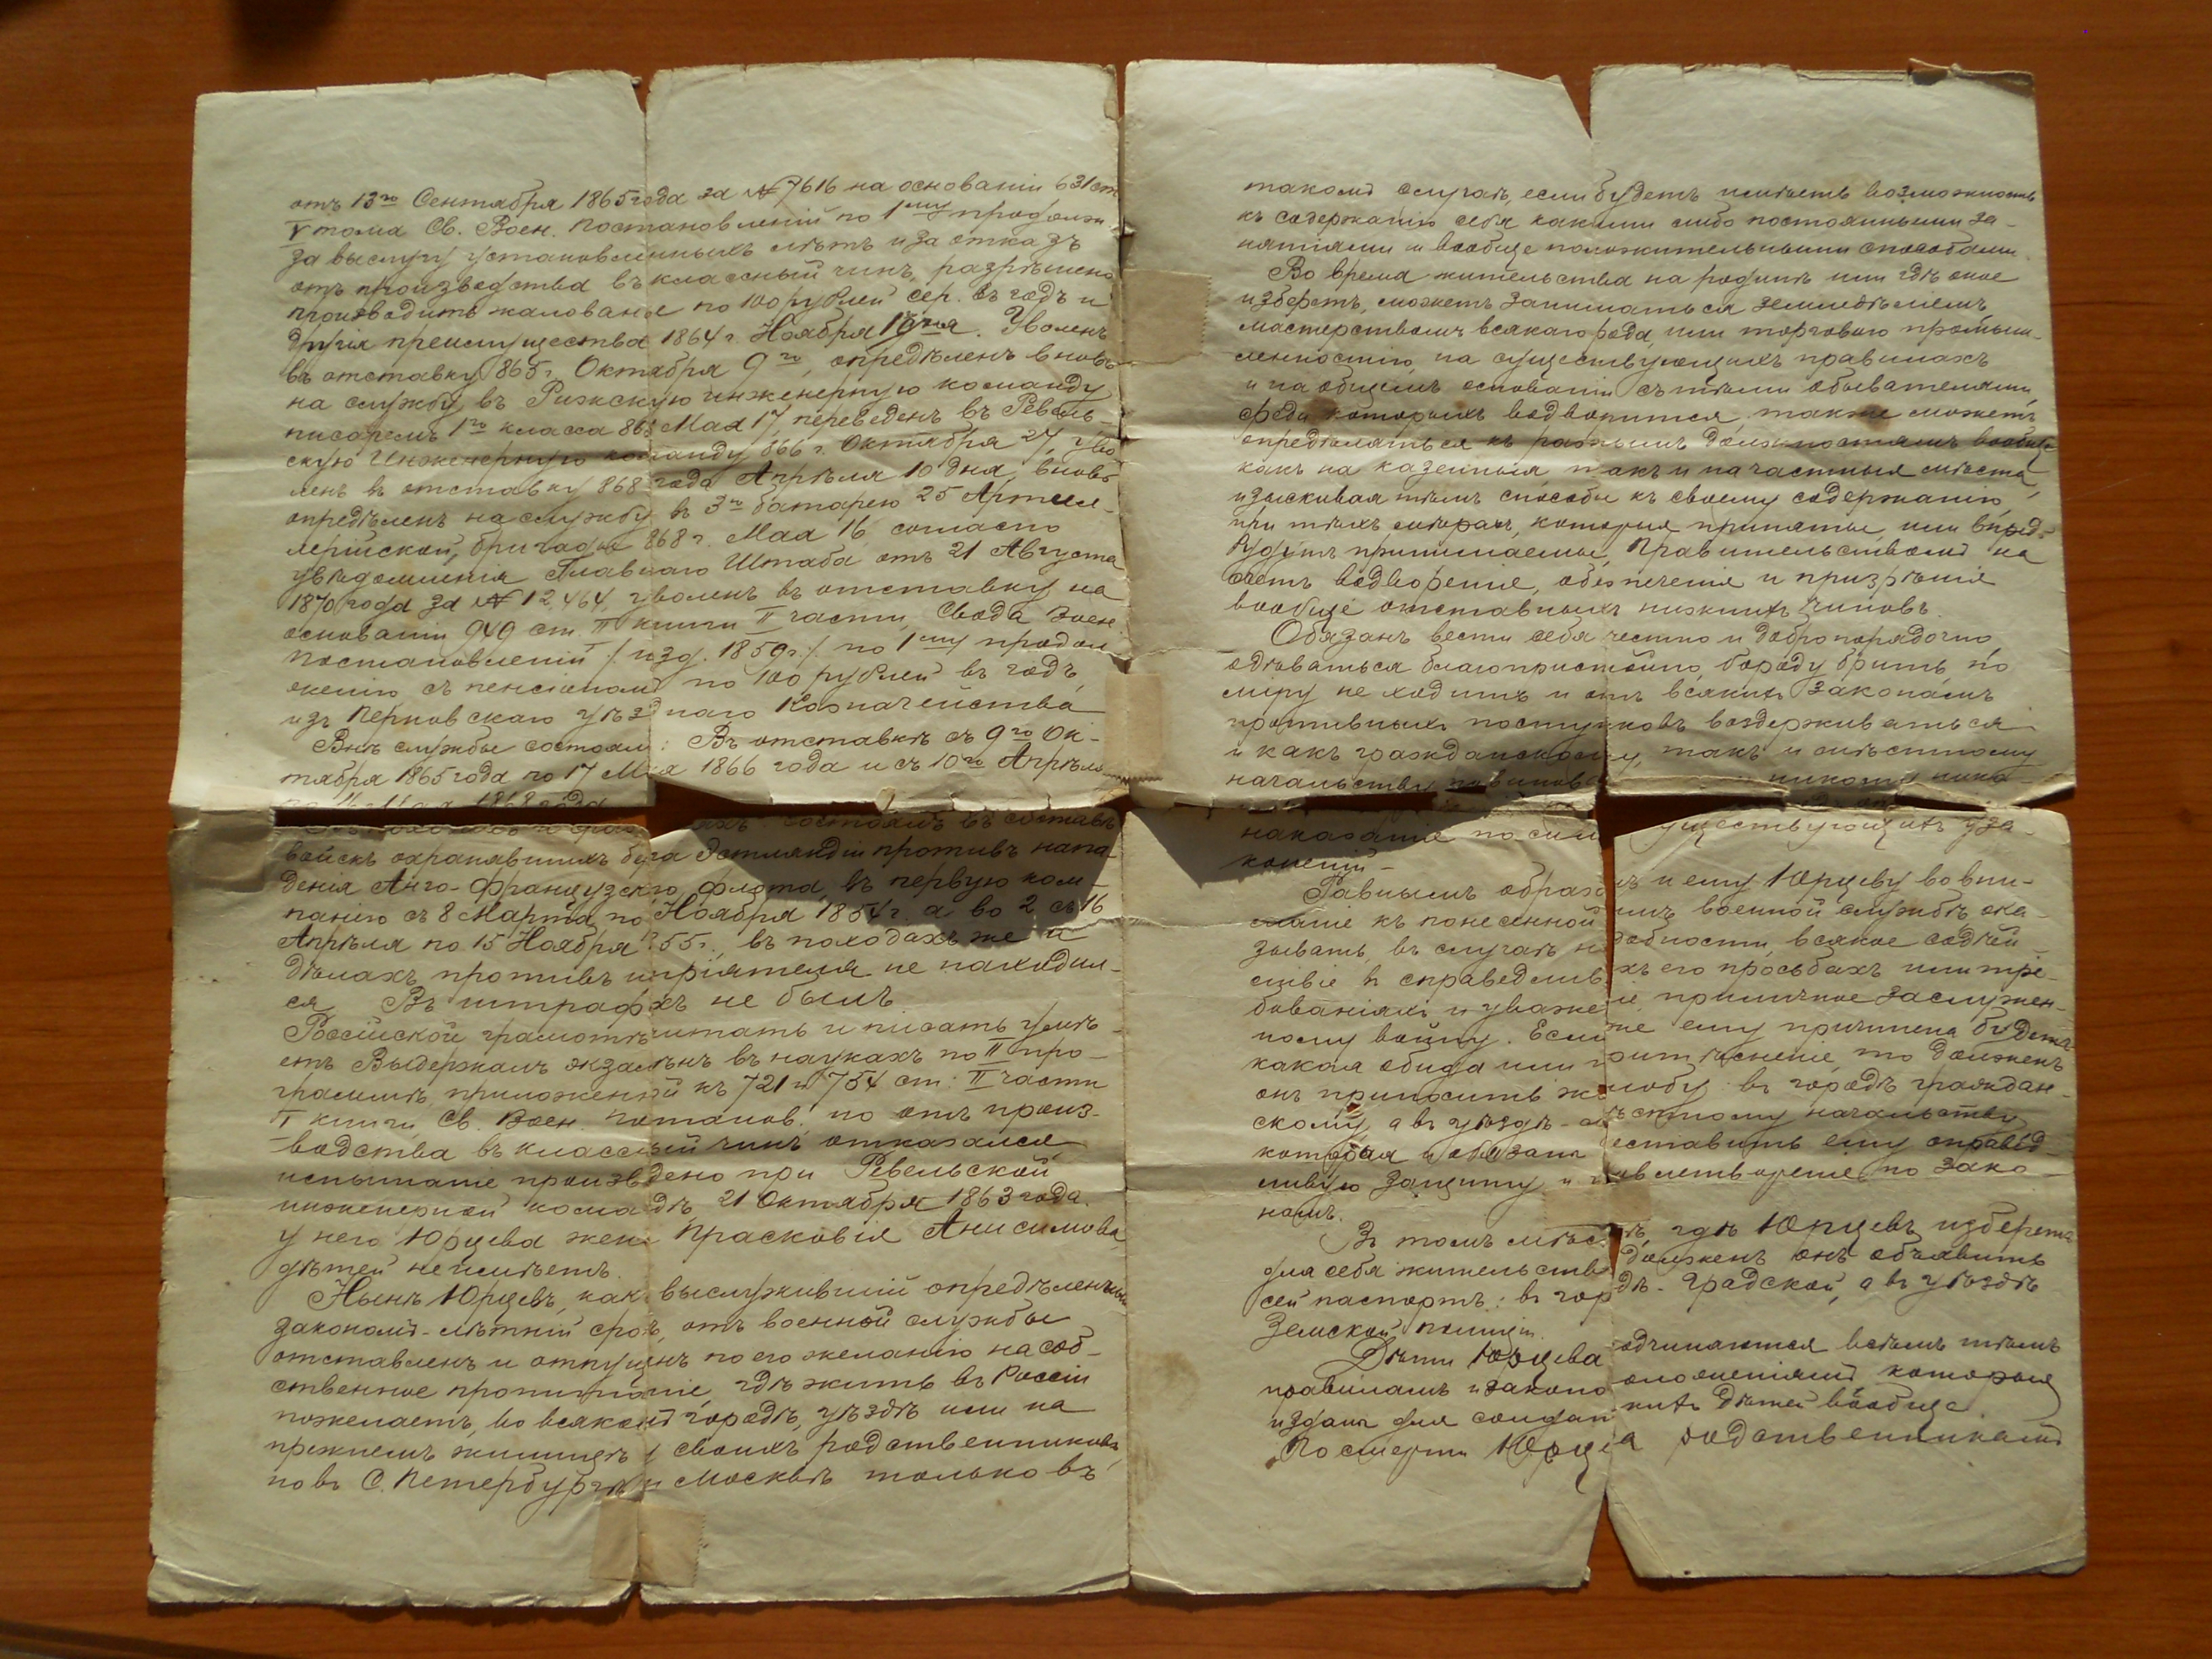 отъ 13го Сентября 1865 года за № 7616 на основаніи 631 ст
V тома Св. Воен. Постановленій по 1му продолж
за выслугу установленныхъ лѣтъ и за отказъ
отъ производства въ классный чинъ, разрѣшено
производить жалованье по 100 рублей сер. въ годъ и
другія преимущества 1864 г. Ноября Уволенъ
въ отставку 865 г. Октября 9го, опредѣленъ вновь
на службу въ Рижскую инженерную команду
писаремъ 1го класса 866 Мая 17, переведенъ въ Ревель-
скую Инженерную команду 866 г. Октября 27, уво
ленъ въ отставку 868 года Апрѣля 10 дня, вновь
опредѣленъ на службу въ 3ю батарею 25 Артил-
лерійской бригады 868 г. Мая 16, согласно
увѣдомленія Главнаго Штаба отъ 21 Августа
1870 года за № 12,464, уволенъ въ отставку на
основаніи 949 ст. II книги II части, Свода Воен
постановленій / изд. 1859 г./ по 1му продол
женію съ пенсіономъ по 100 рублей въ годъ,
изъ Перновскаго уѣзднаго Казначейства
Внѣ службы состоялъ: Въ отставкѣ съ 9го Ок-
тября 1865 года по 17 Мая 1866 года и съ 10го Апрѣля
по 16 Мая 1868 года
состоялъ въ составѣ
войскъ охранявшихъ берега Эстляндіи противъ напа
денія Анго-Французскаго флота, въ первую ком-
панію съ 8 Марта по Ноября 1854 г. а во 2 съ 16
Апрѣля по 15 Ноября 55 г., въ походахъ же и
дѣлахъ противъ непріятеля не находил-
ся Въ штрафахъ не былъ
Россійской грамотѣ читать и писать умѣ-
етъ Выдержалъ экзаменъ въ наукахъ по II про-
граммѣ, приложенной къ 721 и 754 ст: II части
I книги Св. Воен. Постанов. но отъ произ-
водства въ классный чинъ отказался,
испытаніе произведено при Ревельской
инженерной командѣ 21 Октября 1863 года.
у него Юрцева жена Прасковія Анисимова,
дѣтей не имѣетъ.
Нынѣ Юрцевъ, какъ выслужившій опредѣленный
закономъ-лѣтній срокъ, отъ военной службы
отставленъ и отпущенъ по его желанію на соб-
ственное пропитаніе, гдѣ жить въ Россіи
пожелаетъ, во всякомъ городѣ, уѣздѣ или на
прежнемъ жилищѣ у своихъ родственниковъ,
но въ С. Петербургѣ и Москвѣ только въ
такомъ случаѣ, если будетъ имѣть возможность
къ содержанію себя какими либо постоянными за-
нятіями и вообще положительными способами.
Во время жительства на родинѣ или гдѣ оное
изберетъ, можетъ заниматься земледѣліемъ,
мастерствомъ всякаго рода, или торговою промыш-
ленностію, на существующихъ правилахъ
и на общемъ основаніи съ тѣми обывателями,
среди которыхъ водворится, также можетъ
опредѣляться къ разнымъ должностямъ вообще
какъ на казенныя такъ и на частныя мѣста,
изыскивая тѣмъ способы къ своему содержанію,
при тѣхъ мѣрахъ, которыя приняты, или впред-
будутъ принимаемы, Правительствомъ на
счетъ водворенія, обезпеченія и призрѣнія
вообще отставныхъ нижнихъ чиновъ.
Обязанъ вести себя честно и добропорядочно
одѣваться благопристойно, бороду брить, по
міру не ходить и отъ всякихъ законамъ
противныхъ поступковъ воздерживаться
и какъ гражданскому, такъ и мѣстному
начальству повинова
наказаніе по силѣ существующихъ уза-
коненій.
Равнымъ образомъ и ему Юрцеву во вни-
маніе къ понесенной имъ военной службѣ, ока-
зывать, въ случаѣ надобности, всякое содѣй-
ствіе въ справедливыхъ его просьбахъ или тре-
бованіяхъ и уваженіе приличное заслужен-
ному воину. Если же ему причинена будетъ
какая обида или притѣсненіе, то долженъ
онъ приносить жалобу: въ городѣ граждан-
скому, а въ уѣздѣ - мѣстному начальству
которыя и обязаны доставить ему справед-
ливую защиту и удовлетвореніе по зако-
намъ.
Въ томъ мѣстѣ, гдѣ Юрцевъ изберетъ
для себя жительство долженъ онъ объявить
сей паспортъ: въ городѣ - Градской, а въ уѣздѣ
Земской полиціи.
Дѣти Юрцева подчиняются всѣмъ тѣмъ
правиламъ и законоположеніямъ которыя
изданы для солдатскихъ дѣтей вообще.
По смерти Юрцева родственникамъ